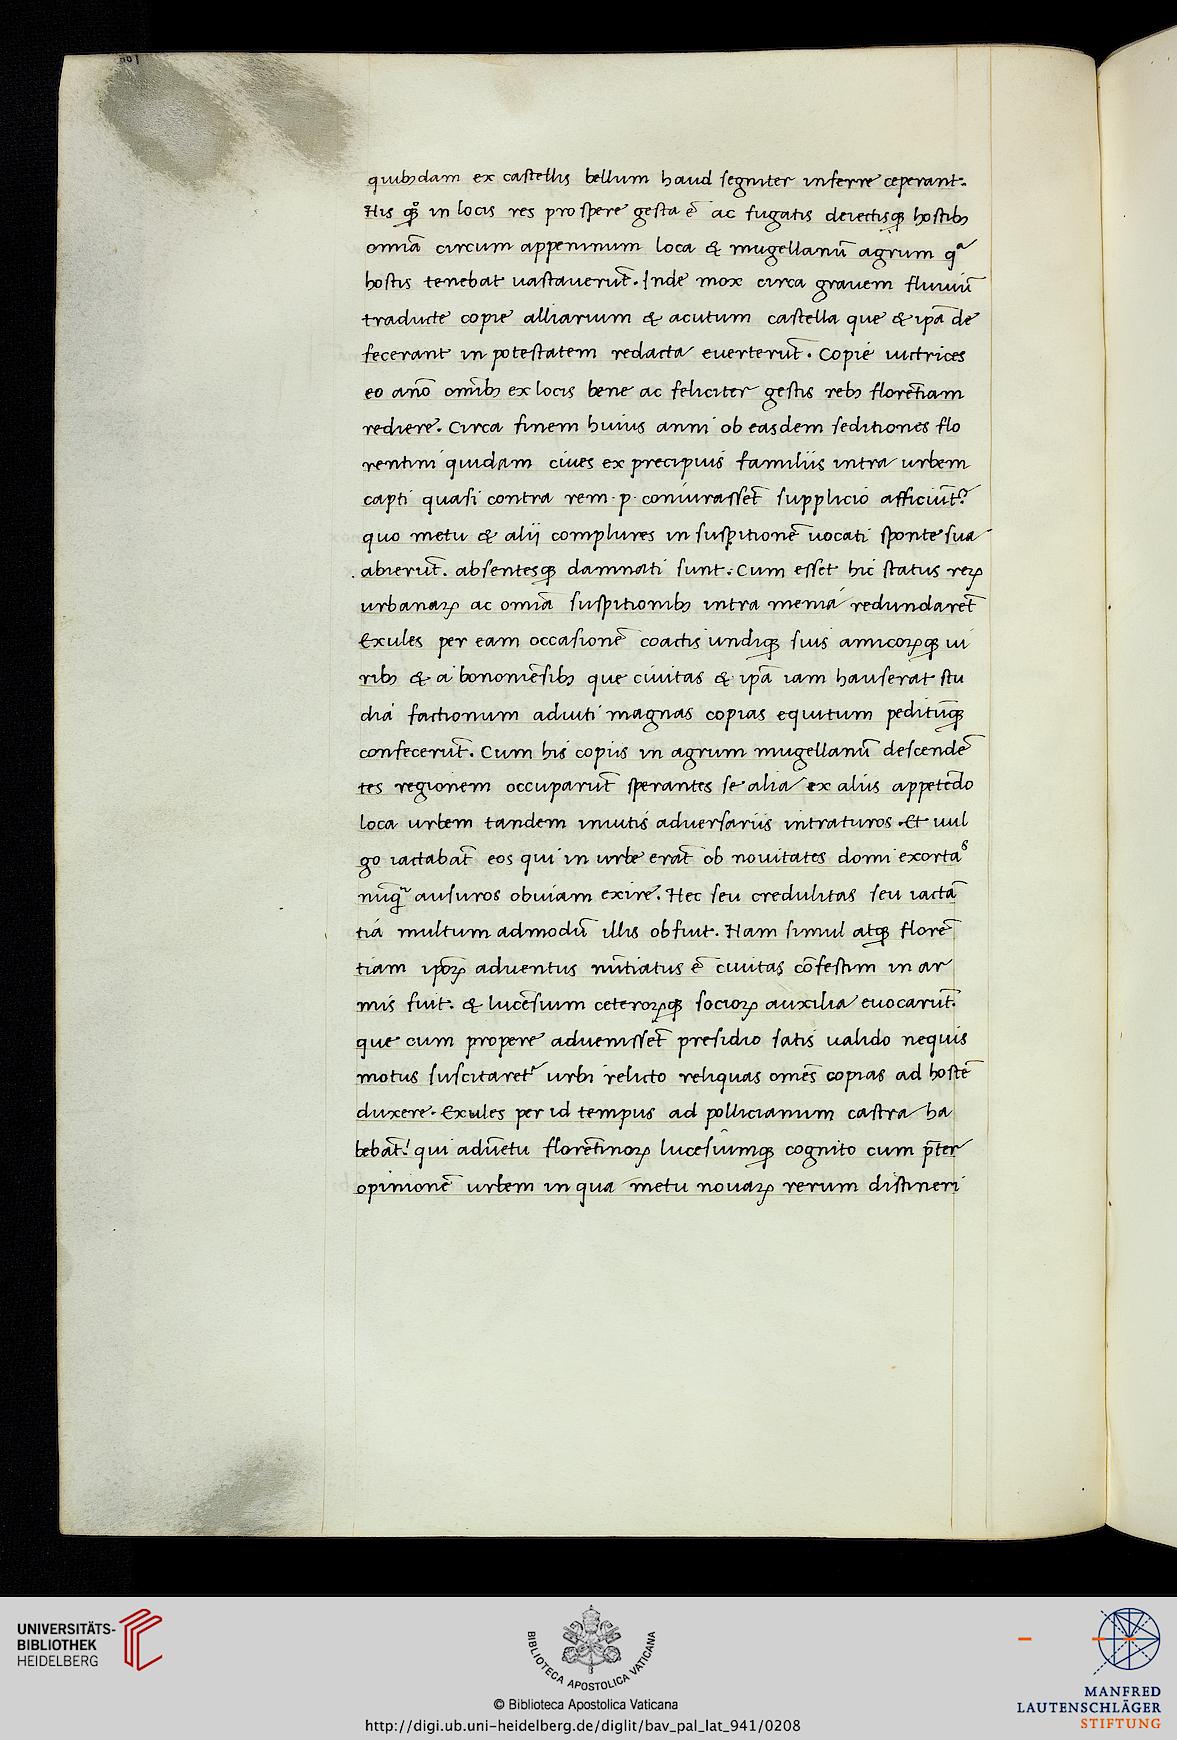 quibꝰdam ex castellis bellum haud segniter inferre ceperant.
His qꝫ in locis res prospere gesta ē ac fugatis deiectisqꝫ hostibꝰ
omīa circum appeninum loca & mugellanū agrum qᵃ
hostis tenebat vastauerūt. Inde mox circa grauem fluuiū
traducte copie alliarium & acutum castella que & ip̄a de
fecerant in potestatem redacta everterūt. Copie victrices
eo an̄o om̄ibꝰ ex locis bene ac feliciter gestis rebꝰ florētiam
rediere. Circa finem huius anni ob easdem seditiones flo
rentini quidam ciues ex precipuis familiis intra urbem
capti quasi contra rem .p. coniurassēt supplicio afficiūtᵘʳ
quo metu & alij complures in suspitionē uocati sponte sua
abierūt. absentesqꝫ damnati sunt. Cum esset hic status reꝝ
urbanaꝝ ac omīa suspitionibꝰ intra menia redundarēt
Exules per eam occasionē coactis undiqꝫ suis amicoꝝqꝫ ui
ribꝰ & a bononiēsibꝰ que ciuitas & ip̄a iam hauserat stu
dia factionum adiuti magnas copias equitum peditūqꝫ
confecerūt. Cum his copiis in agrum mugellanū descendē
tes regionem occuparūt sperantes se alia ex aliis appetēdo
loca urbem tandem inuitis adversariis intraturos. Et uul
go iactabāt eos qui in urbe erāt ob nouitates domi exortaˢ
nūqᵃ ausuros obuiam exire. Hec seu credulitas seu iactā
tia multum admodū illis obfuit. Nam simul atqꝫ florē
tiam ip̄oꝝ adventus nūtiatus ē ciuitas cōfestim in ar
mis fuit. & lucēsium ceteroꝝqꝫ socioꝝ auxilia evocarūt.
que cum propere advenissēt presidio satis ualido nequis
motus suscitaretᵘʳ urbi relicto reliquas om̄es copias ad hostē
duxere. Exules per id tempus ad pollicianum castra ha
bebāt. qui advētu florētinoꝝ lucēsiumqꝫ cognito cum p̄ter
opinionē urbem in qua metu nouaꝝ rerum distineri
UNIVERSITÄTS-
BIBLIOTHEK
HEIDELBERG
BIBLIOTECA APOSTOLICA VATICANA
© Biblioteca Apostolica Vaticana
http://digi.ub.uni-heidelberg.de/diglit/bav_pal_lat_941/0208
MANFRED
LAUTENSCHLÄGER
STIFTUNG